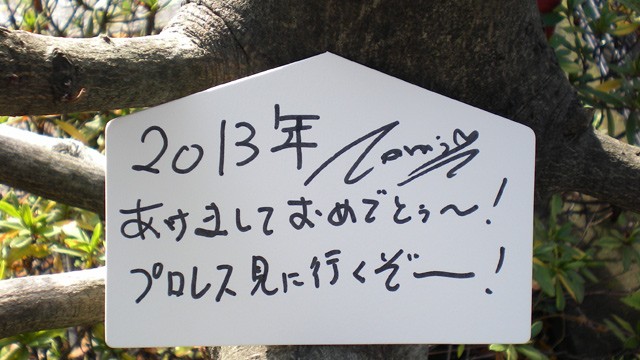 2013年
あけましておめでとぅ〜!
プロレス見に行くぞー!